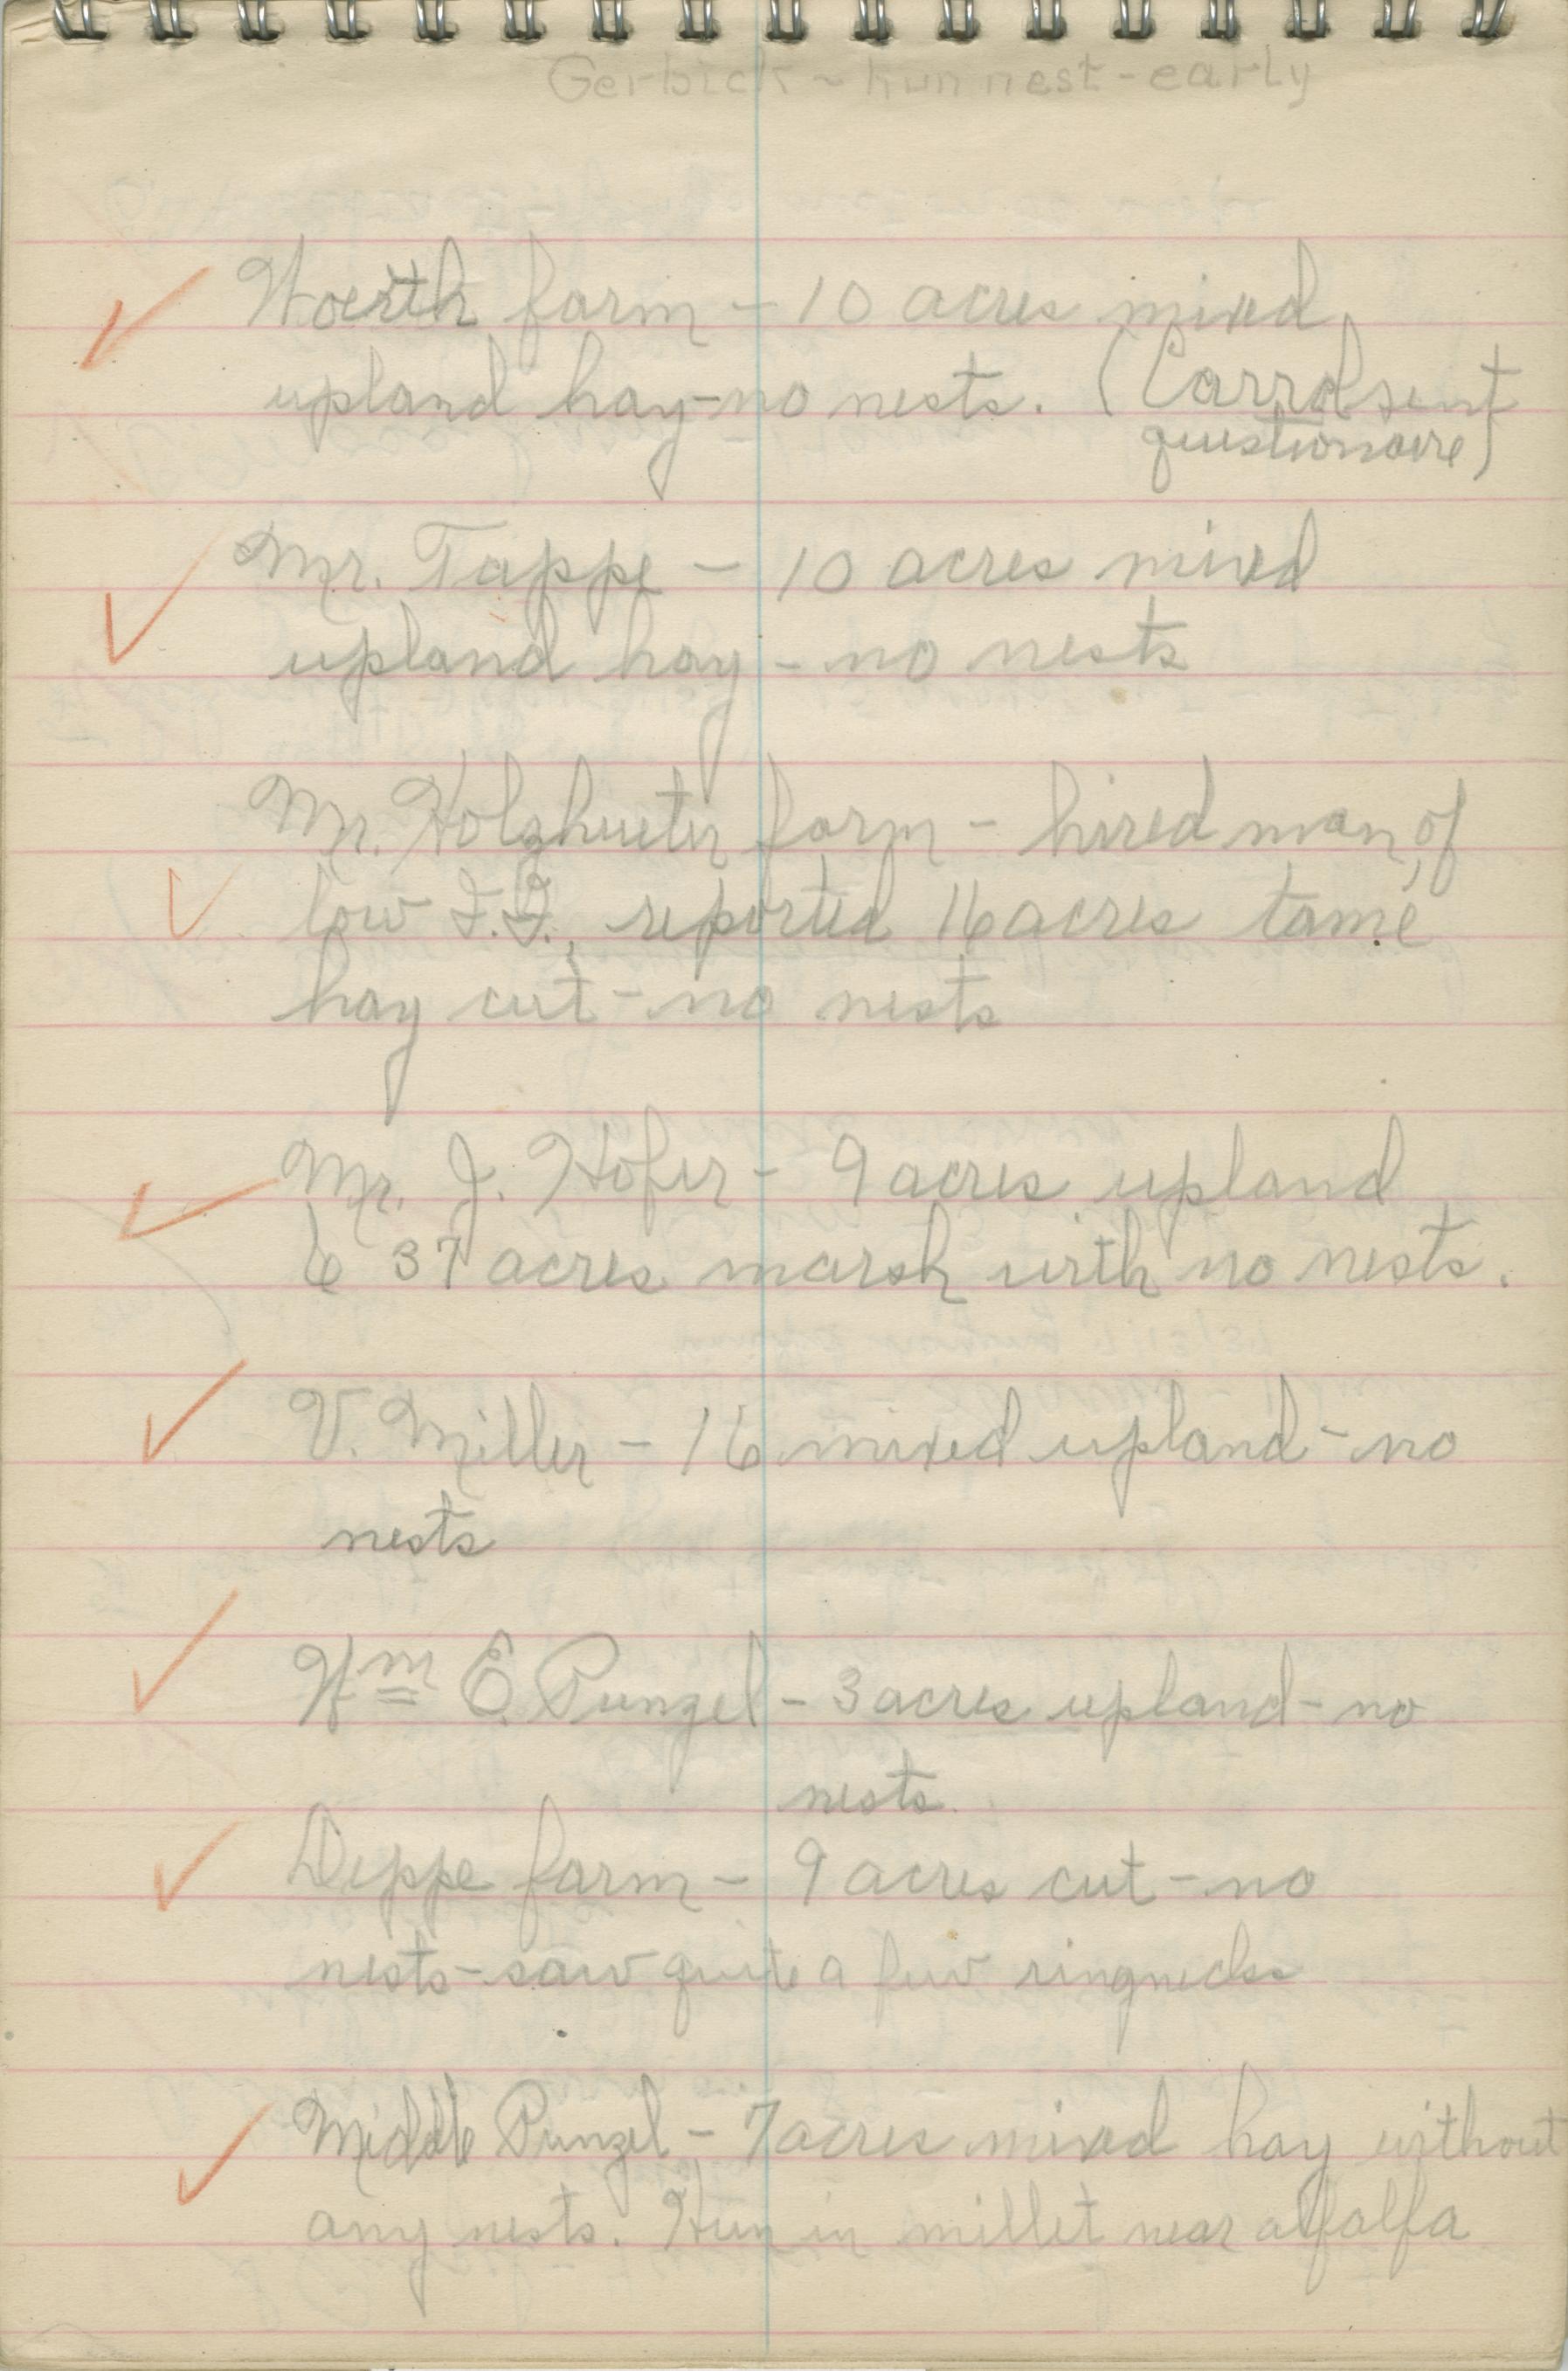 Gerbick - hun nest - early
Woerth farm - 10 acres mixed
upland hay - no nests. (Carrol sent
questionaire)
Mr. Tappe - 10 acres mixed
upland hay - no nests
Mr. Holzhueter farm - hired man, of
low I.Q., reported 16 acres tame
hay cut - no nests
Mr. J. Hofer - 9 acres upland
& 37 acres marsh with no nests.
V. Miller - 16 mixed upland - no
nests
Wm E. Punzel - 3 acres upland - no
nests.
Deppe farm - 9 acres cut - no
nests - saw quite a few ringnecks
Middle Punzel - 7 acres mixed hay without
any nests. Hun in millet near alfalfa